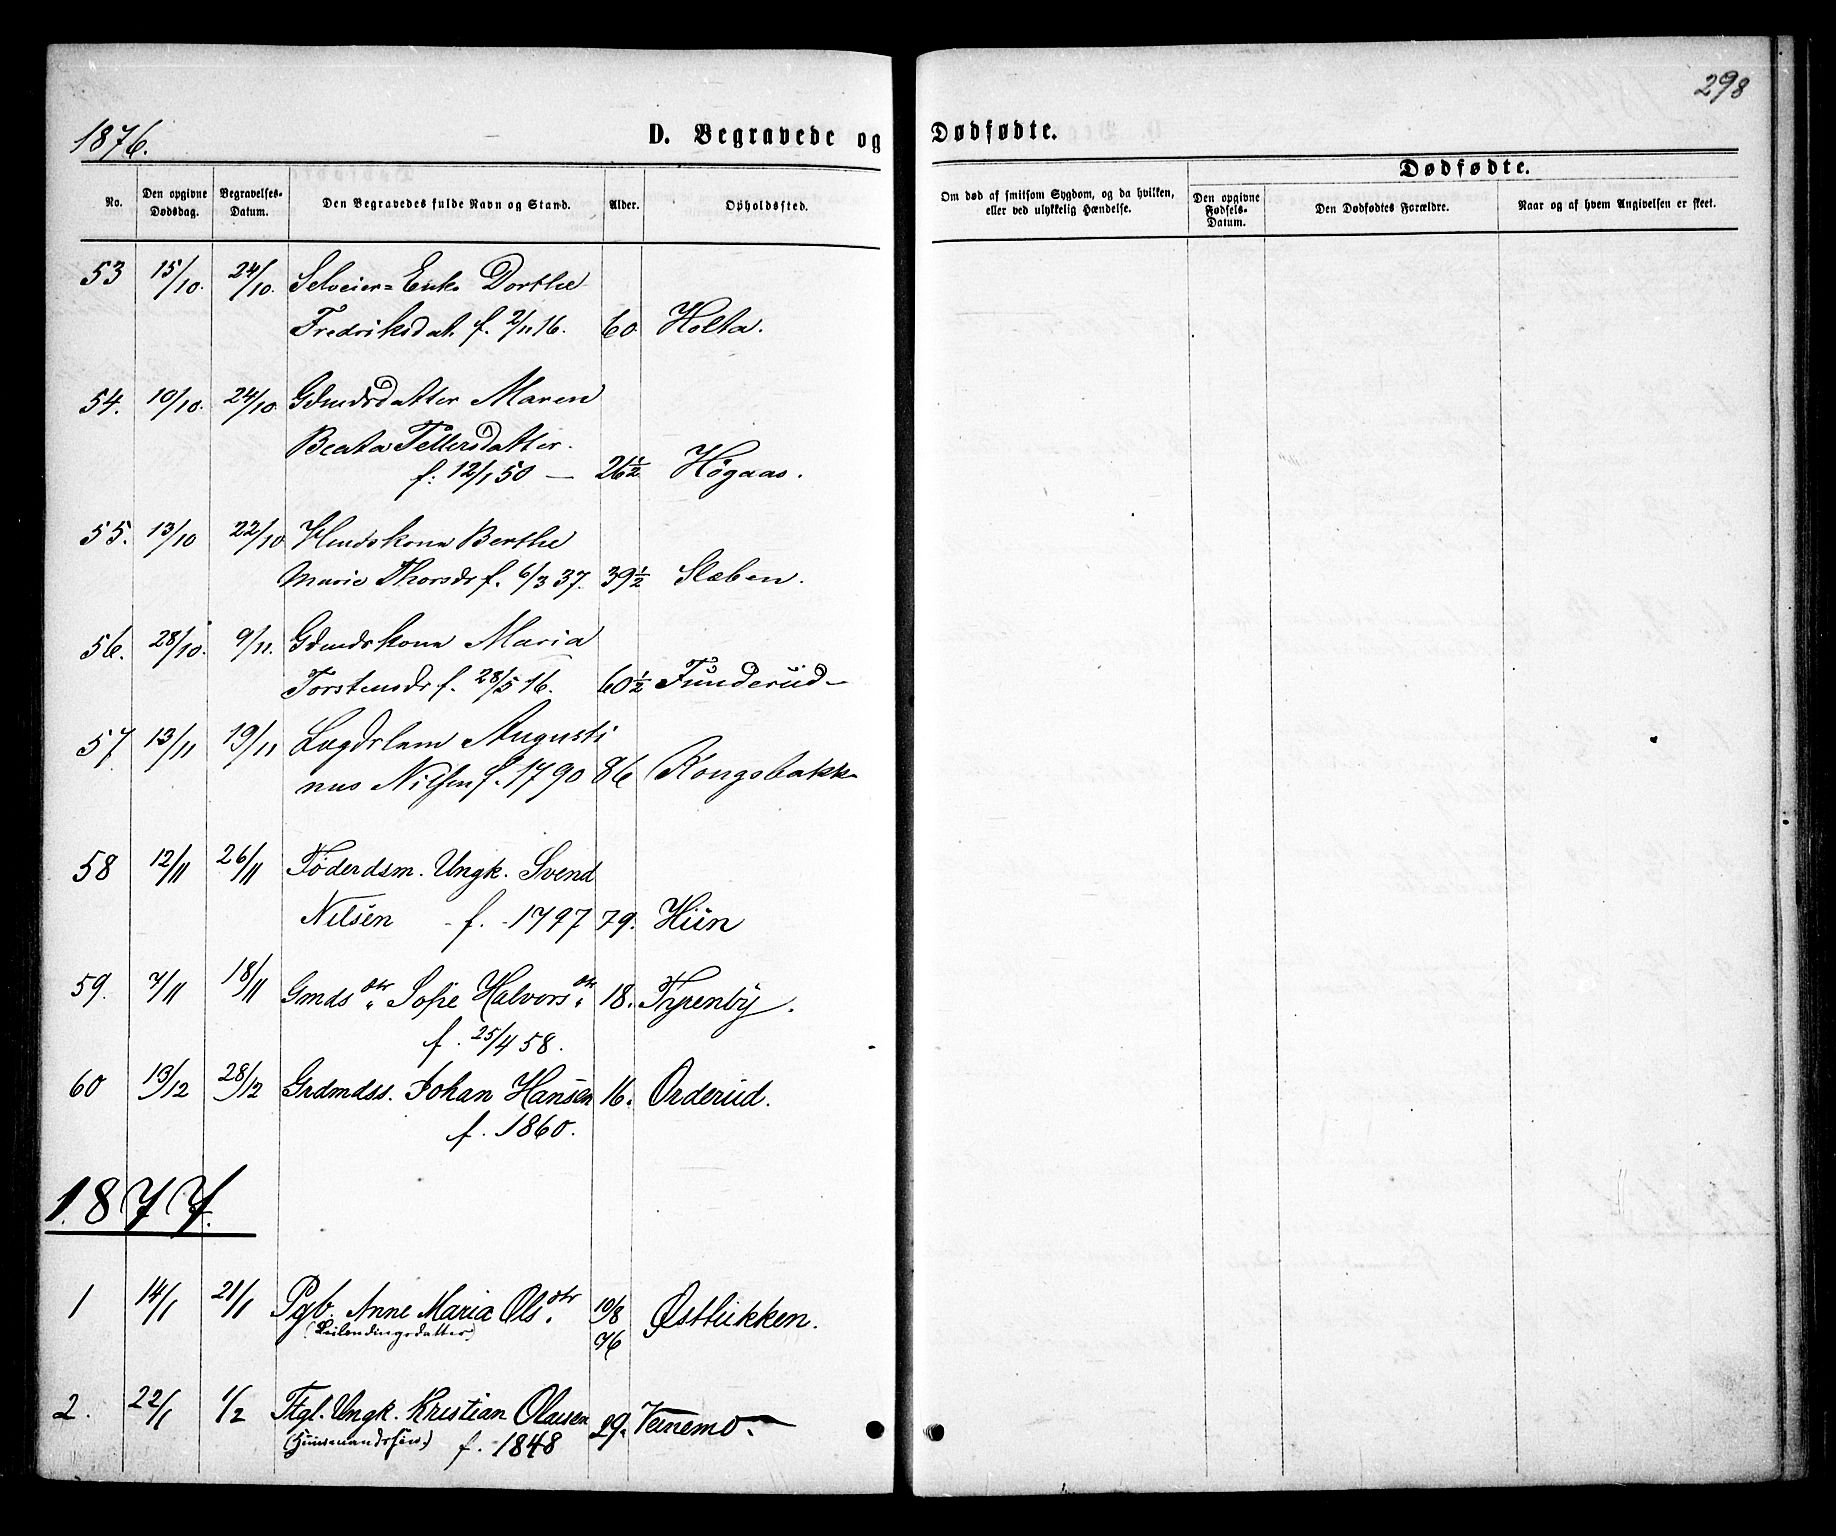 298
1876.
D. Begravede og Dødfødte.
No.
Den opgivne Dødsdag.
Begravelses-Datum.
Den Begravedes fulde Navn og Stand.
Alder.
Opholdssted.
Om død af smitsom Sygdom, og da hvilken, eller ved ulykkelig Hændelse.
Dødfødte.
Den opgivne Fødsels-Datum.
Den Dødfødtes Forældre.
Naar og af hvem Angivelsen er skeet.
53 15/10. 24/10. Selveier= Enke Dorthe
Fredriksdat. f. 2/11 16. 60 Holta.
54. 10/10. 24/10. Gdmdsdatter Maren
Beata Tellersdatter.
f: 12/1 50 — 26 1/2 Høgaas.
55. 13/10 22/10 Hmdskone Berthe
Marie Thorsdr f. 6/3 37. 39 1/2 Slæben.
56. 28/10. 9/11. Gdmdskone Maria
Torstensdr f. 28/5 16. 60 1/2 Funderud
57 13/11 19/11 Lægdslem Augusti
nus Nilsen f. 1790 86 Kongsbakke
58 12/11 26/11 Føderdsm. Ungk. Svend
Nilsen - f. - 1797 79. Huen
59. 7/11 18/11 Gmds dtr Sofie Halvors dtr 18. Fyrenby.
f. 25/4 58.
60 13/12 28/12 Grdmdss. Johan Hansen 16. Orderud.
f. 1860.
1877.
1 14/1 21/1 Pgb. Anne Maria Ols dtr 10/8 Østlukken.
(Leilendingsdatter) 76
2. 22/1 1/2 Ftgl. Ungk. Kristian Olausen 29. Venemo.
(Huusmandssøn) f. 1848